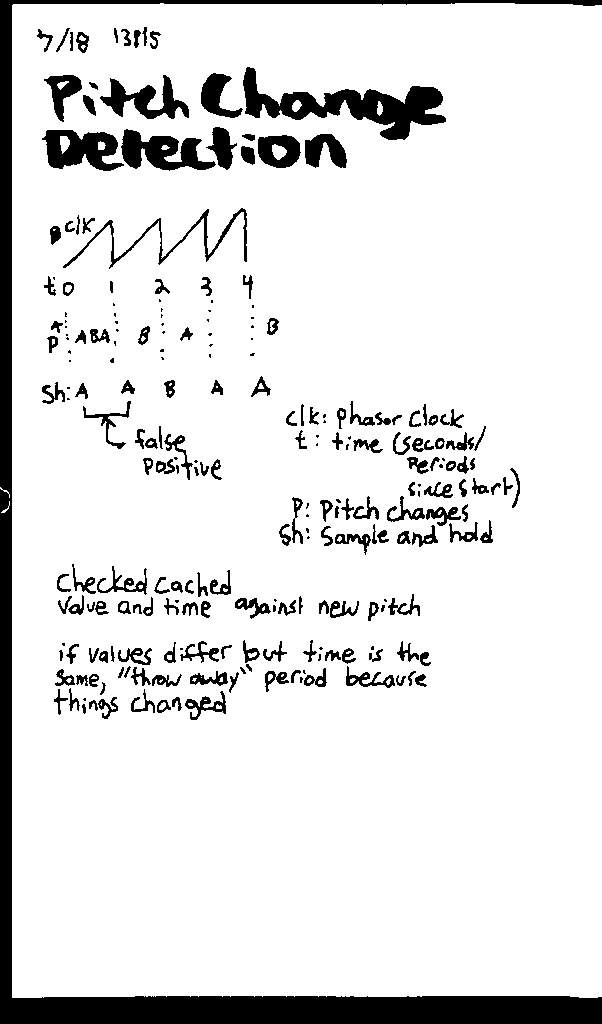 7/18 13815
Pitch Change
Detection
clk
t: 0 1 2 3 4
P A ABA B A B
Sh: A A B A A
false
positive
clk: phasor clock
t: time (seconds/
Periods
since start)
P: Pitch changes
Sh: Sample and hold
Checked cached
value and time against new pitch
if values differ but time is the
same, "throw away" period because
things changed